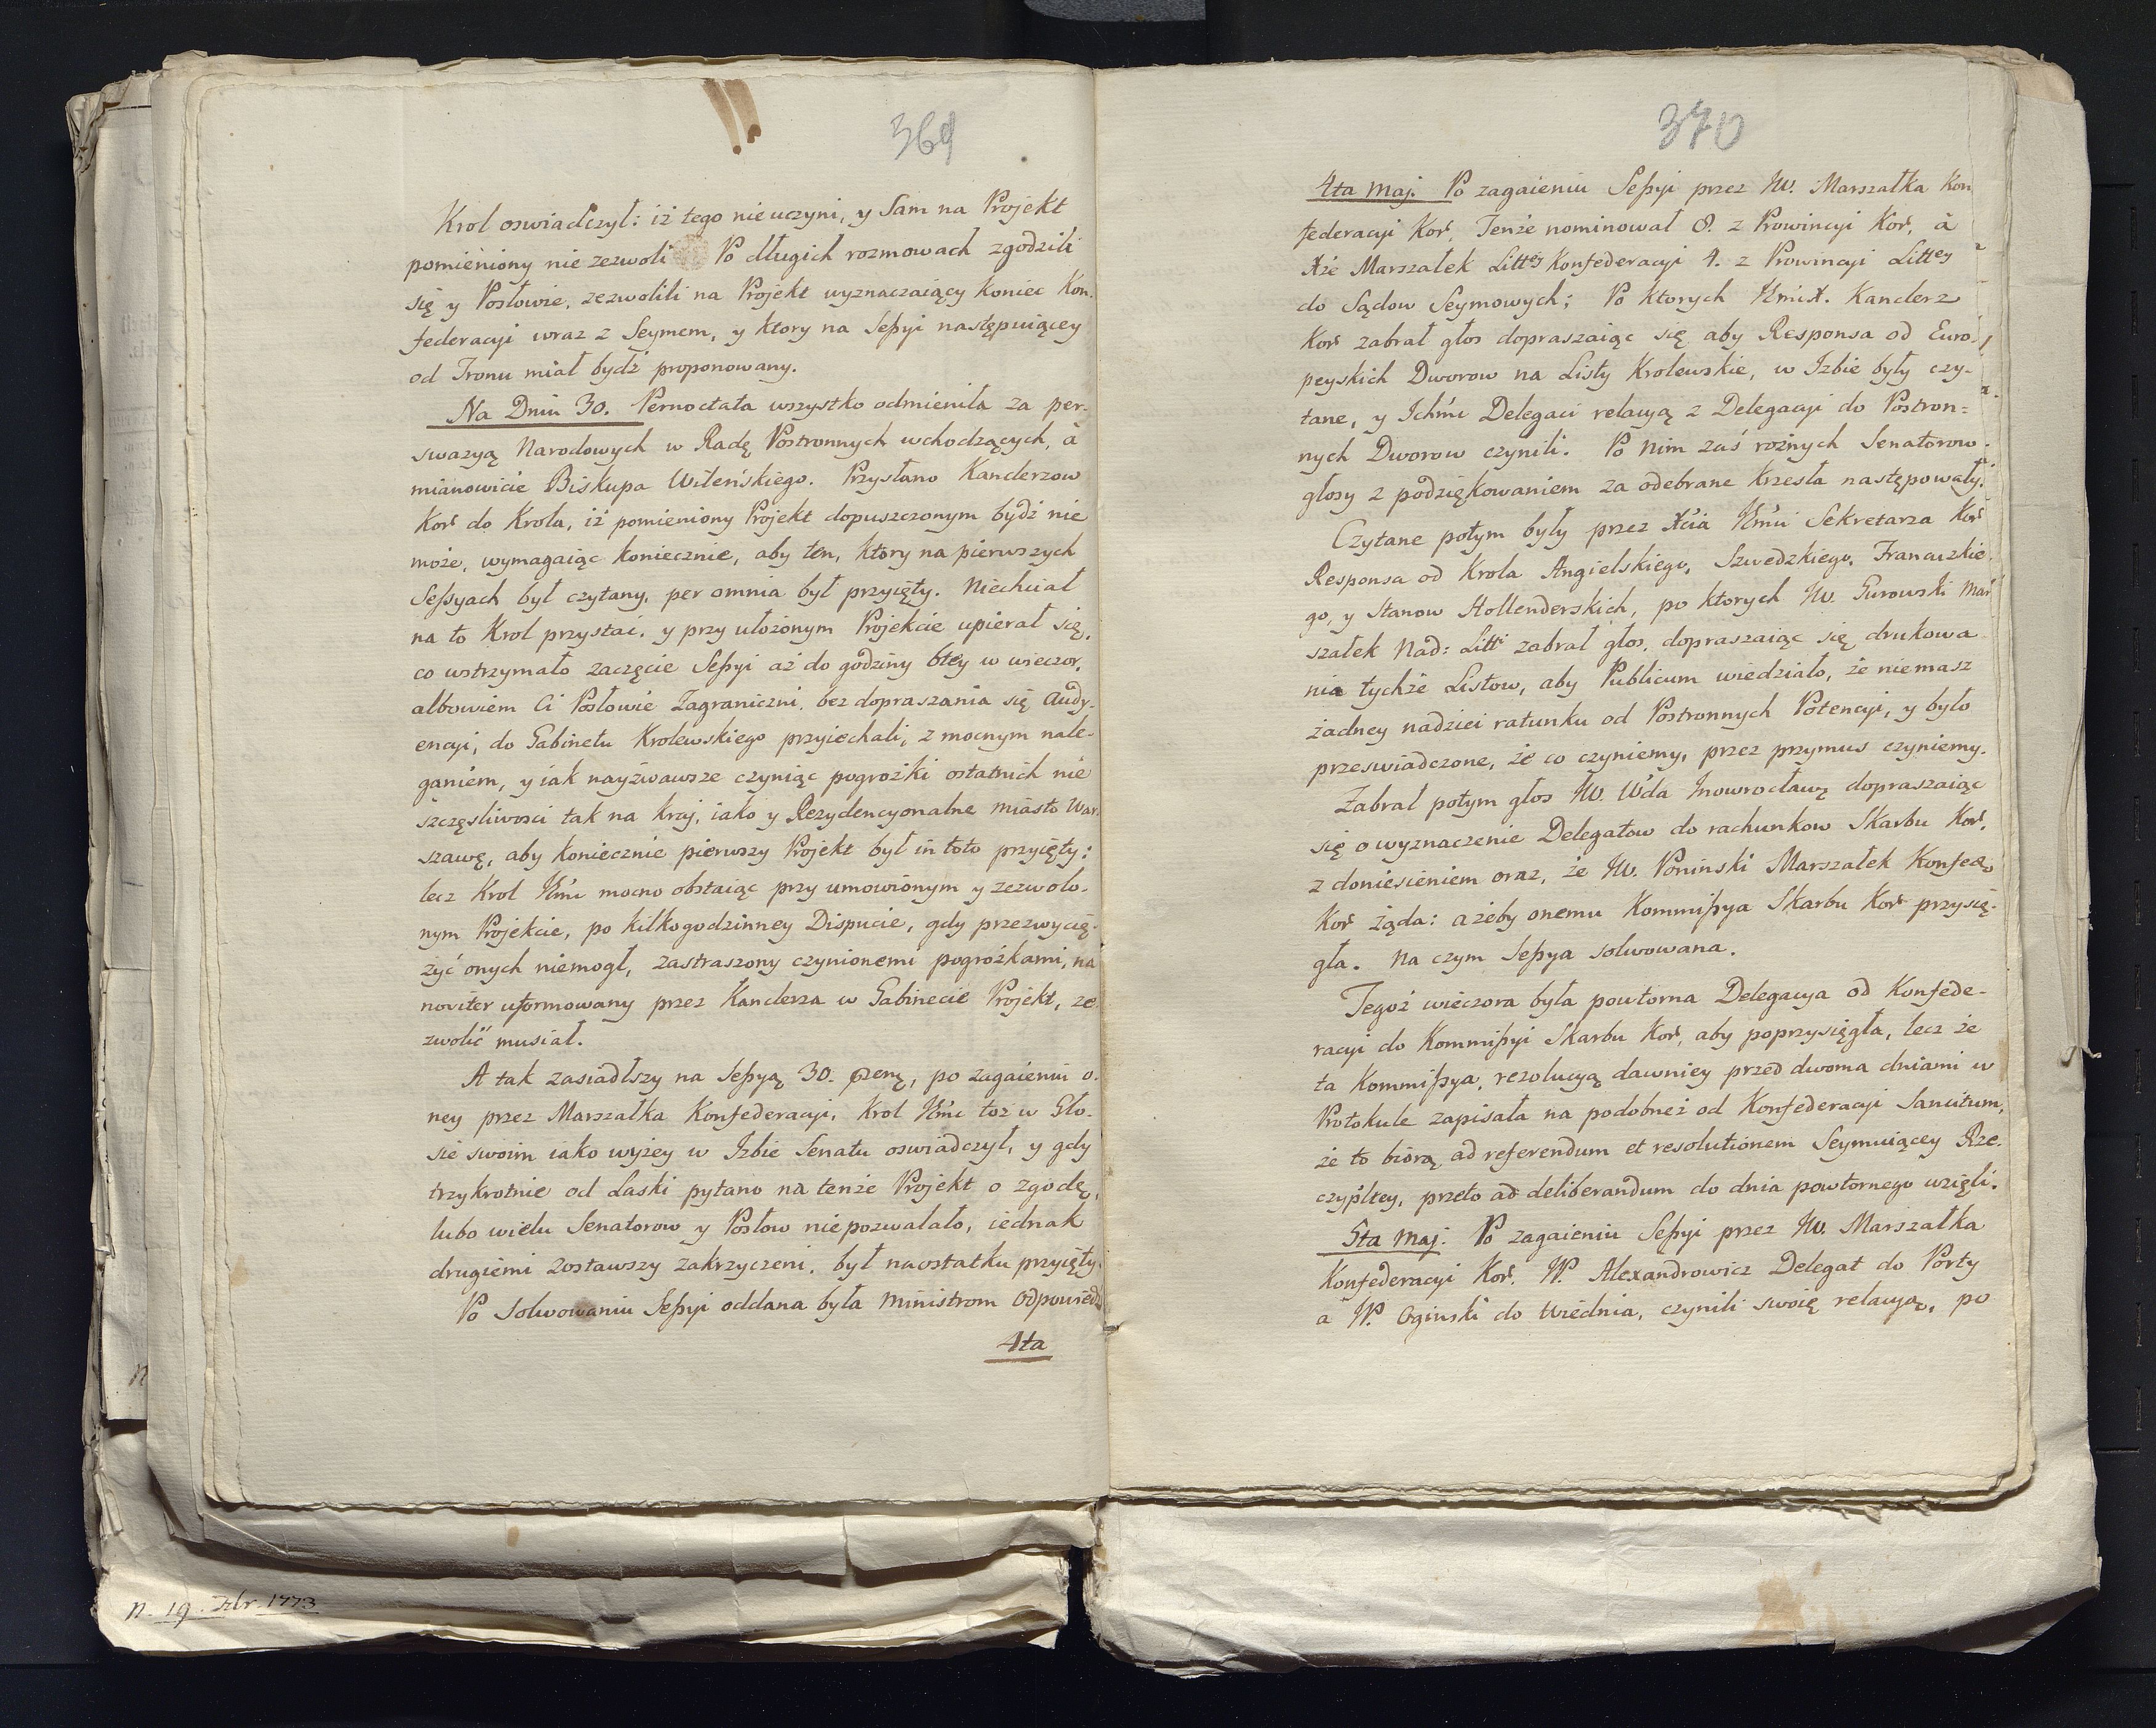 369
Krol oswiadczył: iż tego nie uczyni, y Sam na Projekt
pomieniony nie zezwoli Po długich rozmowach zgodzili
się y Posłowie, zezwolili na Projekt wyznaczaiący koniec Kon-
federacyi wraz z Seymem, y ktory na Seßyi następuiącey
od Tronu miał bydź proponowany.
Na Dniu 30. Pernoctata wszystko odmieniła za per-
swazyą Narodowych w Radę Postronnych wchodzących, à
mianowicie Biskupa Wileńskiego. Przysłano Kanclerzow
Kor do Krola, iż pomieniony Projekt dopuszczonym bydź nie
może, wymagaiąc koniecznie, aby ten, ktory na pierwszych
Seßyach był czytany, per omnia był przyięty. Niechciał
na to Krol przystać, y przy ułożonym Projekcie upierał się,
co wstrzymało zaczęcie Seßyi aż do godziny 6tey w wieczor,
albowiem Ci Posłowie Zagraniczni, bez dopraszania się Audy-
encyi, do Gabinetu Krolewskiego przyiechali, z mocnym nale-
ganiem, y iak nayżwawsze czyniąc pogrożki ostatnich nie
szczęsliwosci tak na kraj, iako y Rezydencyonalne miasto War-
szawę, aby koniecznie pierwszy Projekt był in toto przyięty:
lecz Krol Jmć mocno obstaiąc przy umowionym y zezwolo-
nym Projekcie, po kilkogodzinney Dispucie, gdy przezwycię-
żyć onych niemogł, zastraszony czynionemi pogrożkami, na
noviter uformowany przez Kanclerza w Gabinecie Projekt, ze-
zwolić musiał.
A tak zasiadłszy na Seßyą 30. , po zagaieniu o-
ney przez Marszałka Konfederacyi, Krol Jmć toż w Gło-
sie swoim iako wyżey w Izbie Senatu oswiadczył, y gdy
trzykrotnie od Laski pytano na tenże Projekt o zgodę,
lubo wielu Senatorow y Posłow niepozwalało, iednak
drugiemi zostawszy zakrzyczeni, był naostatku przyięty.
Po Solwowaniu Seßyi oddana była Ministrom Odpowiedź
4ta
n. 19. Xbr. 1773
370
4ta Maj. Po zagaieniu Seßyi przez JW. Marszałka Kon
federacyi Kor, Tenże nominował 8. z Prowincyi Kor, à
Xże Marszałek Littey Konfederacyi 4. z Prowincyi Littey
do Sądow Seymowych; Po ktorych Jmć X. Kanclerz
Kor zabrał głos dopraszaiąc się aby Responsa od Euro-
peyskich Dworow na Listy Krolewskie, w Izbie były czy-
tane, y Ichmć Delegaci relacyą z Delegacyi do Postron=
nych Dworow czynili. Po nim zaś rożnych Senatorow
głosy z podziękowaniem za odebrane Krzesła następowały.
Czytane potym były przez Xcia Jmci Sekretarza Kor
Responsa od Krola Angielskiego, Szwedzkiego, Francuzkie-
go, y Stanow Hollenderskich, po ktorych JW. Gurowski Mar
szałek Nad: Litt zabrał głos, dopraszaiąc się drukowa
nia tychże Listow, aby Publicum wiedziało, że niemasz
żadney nadziei ratunku od Postronnych Potencyi, y było
przeswiadczone, że co czyniemy, przez przymus czyniemy.
Zabrał potym głos JW. Wda Inowrocławs dopraszaiąc
się o wyznaczenie Delegatow do rachunkow Skarbu Kor,
z doniesieniem oraz, że JW. Poninski Marszałek Konfed
Kor żąda: ażeby onemu Kommißya Skarbu Kor przysię-
gła. Na czym Seßya solwowana.
Tegoż wieczora była powtorna Delegacya od Konfede-
racyi do Kommißyi Skarbu Kor, aby poprzysięgła, lecz że
ta Kommißya, rezolucyą dawniey przed dwoma dniami w
Protokule zapisała na podobneż od Konfederacyi Sancitum,
że to biorą ad referendum et resolutionem Seymuiącey Rze-
czypltey, przeto ad deliberandum do dnia powtornego wzięli.
5ta Maj. Po zagaieniu Seßyi przez JW. Marszałka
Konfederacyi Kor, W. Alexandrowicz Delegat do Porty
a W. Oginski do Wiednia, czynili swoię relacyą, po